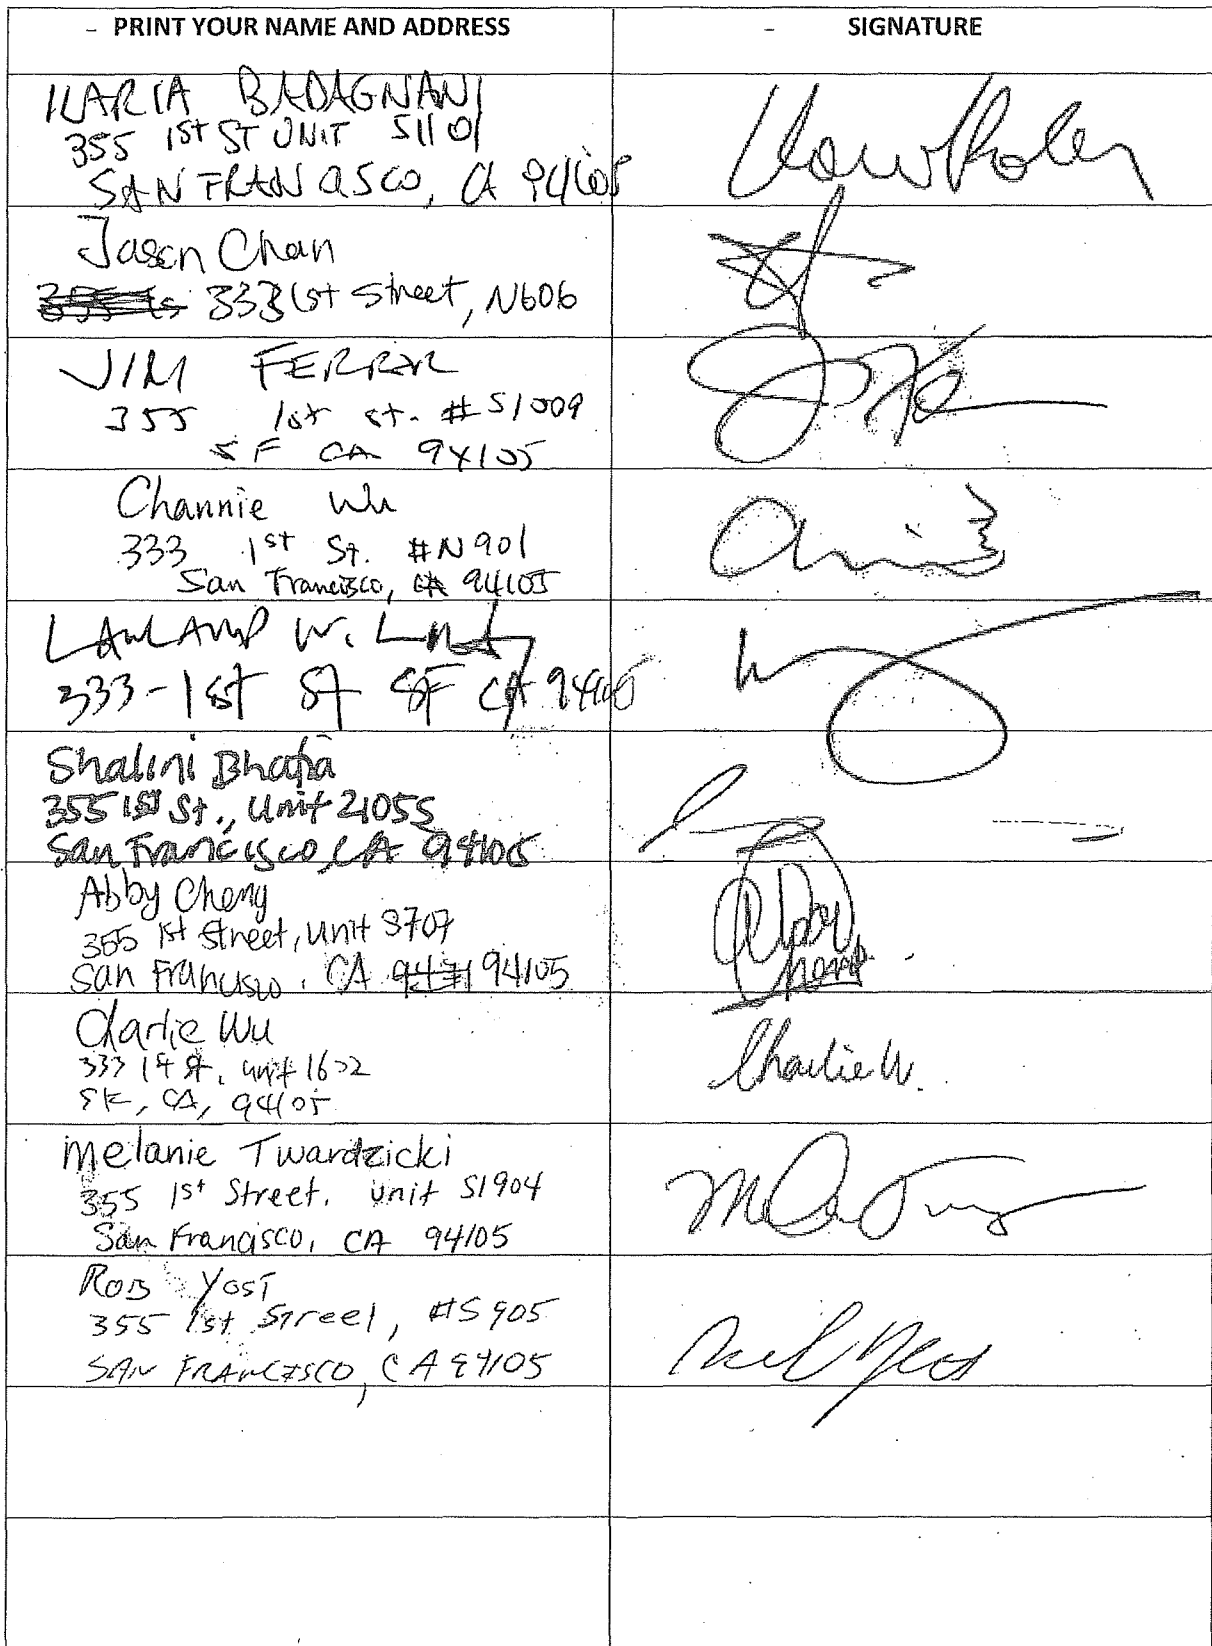 - PRINT YOUR NAME AND ADDRESS
- SIGNATURE
ILARIA BADAGNANI
355 1ST ST UNIT S1101
SAN FRANCISCO, CA 94105
Jason Chan
333 1st Street, N606
JIM FERRAR
355 1st st. # S1009
SF CA 94105
Channie Wu
333 1st St. #N901
San Francisco, CA 94105
W.
333-1st St SF CA 94105
Shalini Bhatia
355 1st St., Unit 2105S
San Francisco, CA 94105
Abby Cheng
355 1st Street, Unit S707
San Francisco, CA 94105
Abby Cheng
Charlie Wu
333 1st St, unit 1602
SF, CA, 94105
Charlie W.
Melanie Twardzicki
355 1st Street. Unit S1904
San Francisco, CA 94105
ROB YOST
355 1st Street, #S905
SAN FRANCISCO, CA 94105